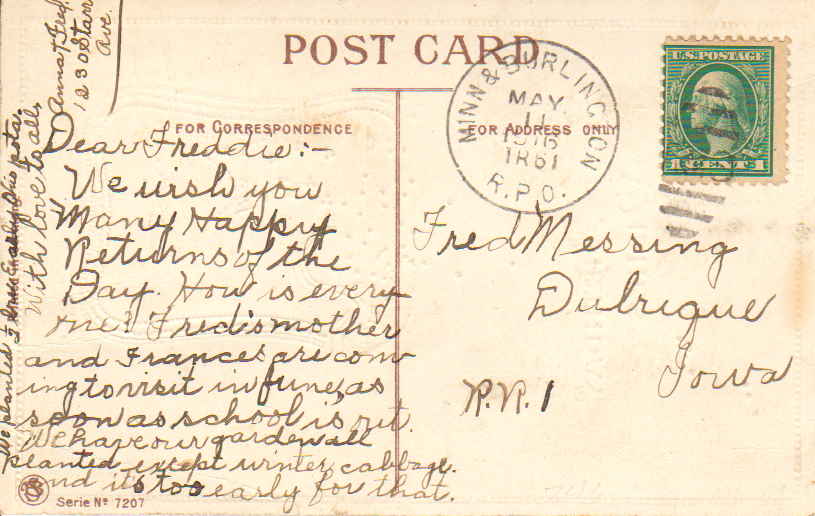 POST CARD
FOR CORRESPONDENCE
FOR ADDRESS ONLY
MINN & BURLINGTON
MAY
11
1916
TR61
R.P.O.
U.S. POSTAGE
1 CENT 1
Dear Freddie:-
We wish you
Many Happy
Returns of the
Day. How is every
one? Fred's mother
and Frances are com
ing to visit in June, as
soon as school is out.
We have our garden all
planted except winter cabbage.
and it's too early for that.
We planted Ohio pota.
With love to all.
Anna & Fred,
1230 Starr
Ave.
Fred Messing
Dubuque
Iowa
R.R. 1
Serie No 7207